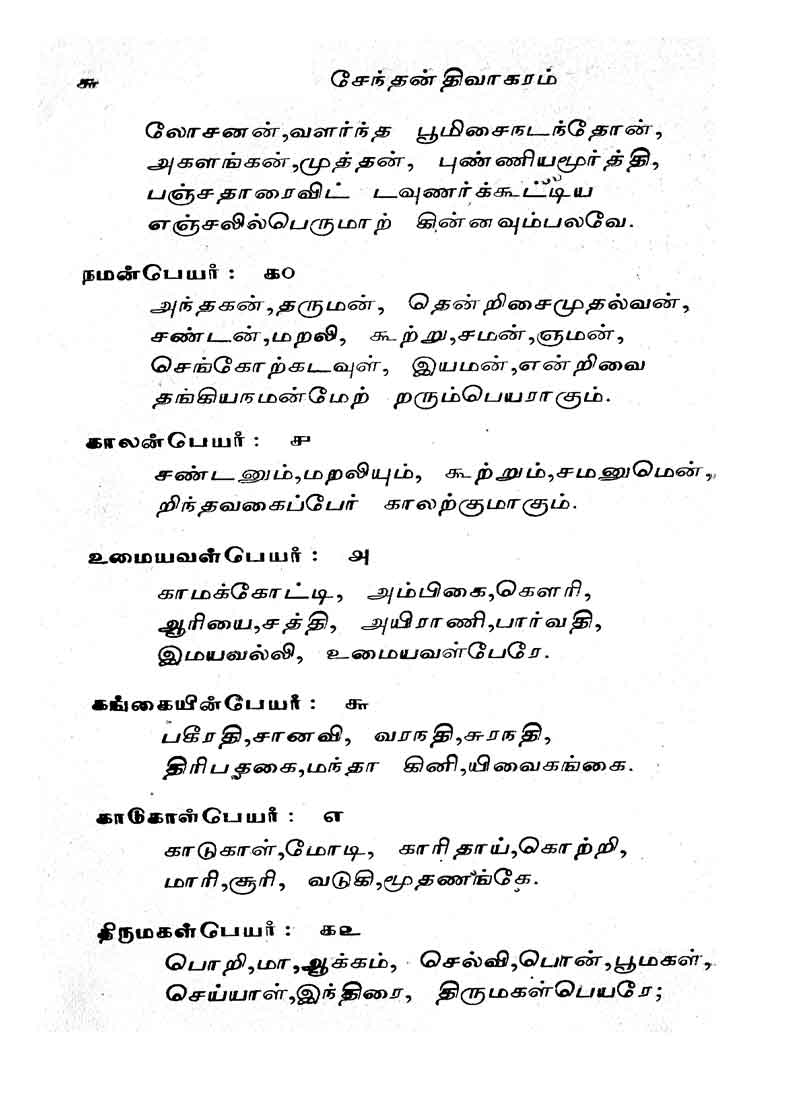 ௬ சேந்தன் திவாகரம்
லோசனன்,வளர்ந்த பூமிசைநடந்தோன்,
அகளங்கன்,முத்தன், புண்ணியமூர்த்தி,
பஞ்சதாரைவிட் டவுணர்க்கூட்டிய
எஞ்சலில்பெருமாற் கின்னவும்பலவே.
நமன்பேயர் : ௧௦
அந்தகன்,தருமன், தென்றிசைமுதல்வன்,
சண்டன்,மறலி, கூற்று,சமன்,ஞமன்,
செங்கோற்கடவுள், இயமன்,என்றிவை
தங்கியநமன்மேற் றரும்பெயராகும்.
காலன்பேயர் : ௪
சண்டனும்,மறலியும், கூற்றும்,சமனுமென்,
றிந்தவகைப்பேர் காலற்குமாகும்.
உமையவள்பேயர் : ௮
காமக்கோட்டி, அம்பிகை,கௌரி,
ஆரியை,சத்தி, அயிராணி,பார்வதி,
இமயவல்லி, உமையவள்பேரே.
கங்கையின்பேயர் : ௬
பகீரதி,சானவி, வரநதி,சுரநதி,
திரிபதகை,மந்தா கினி,யிவைகங்கை.
காடுகாள்பேயர் : ௭
காடுகாள்,மோடி, காரிதாய்,கொற்றி,
மாரி,சூரி, வடுகி,மூதணங்கே.
திருமகள்பேயர் : ௧௨
பொறி,மா,ஆக்கம், செல்வி,பொன்,பூமகள்,
செய்யாள்,இந்திரை, திருமகள்பெயரே;